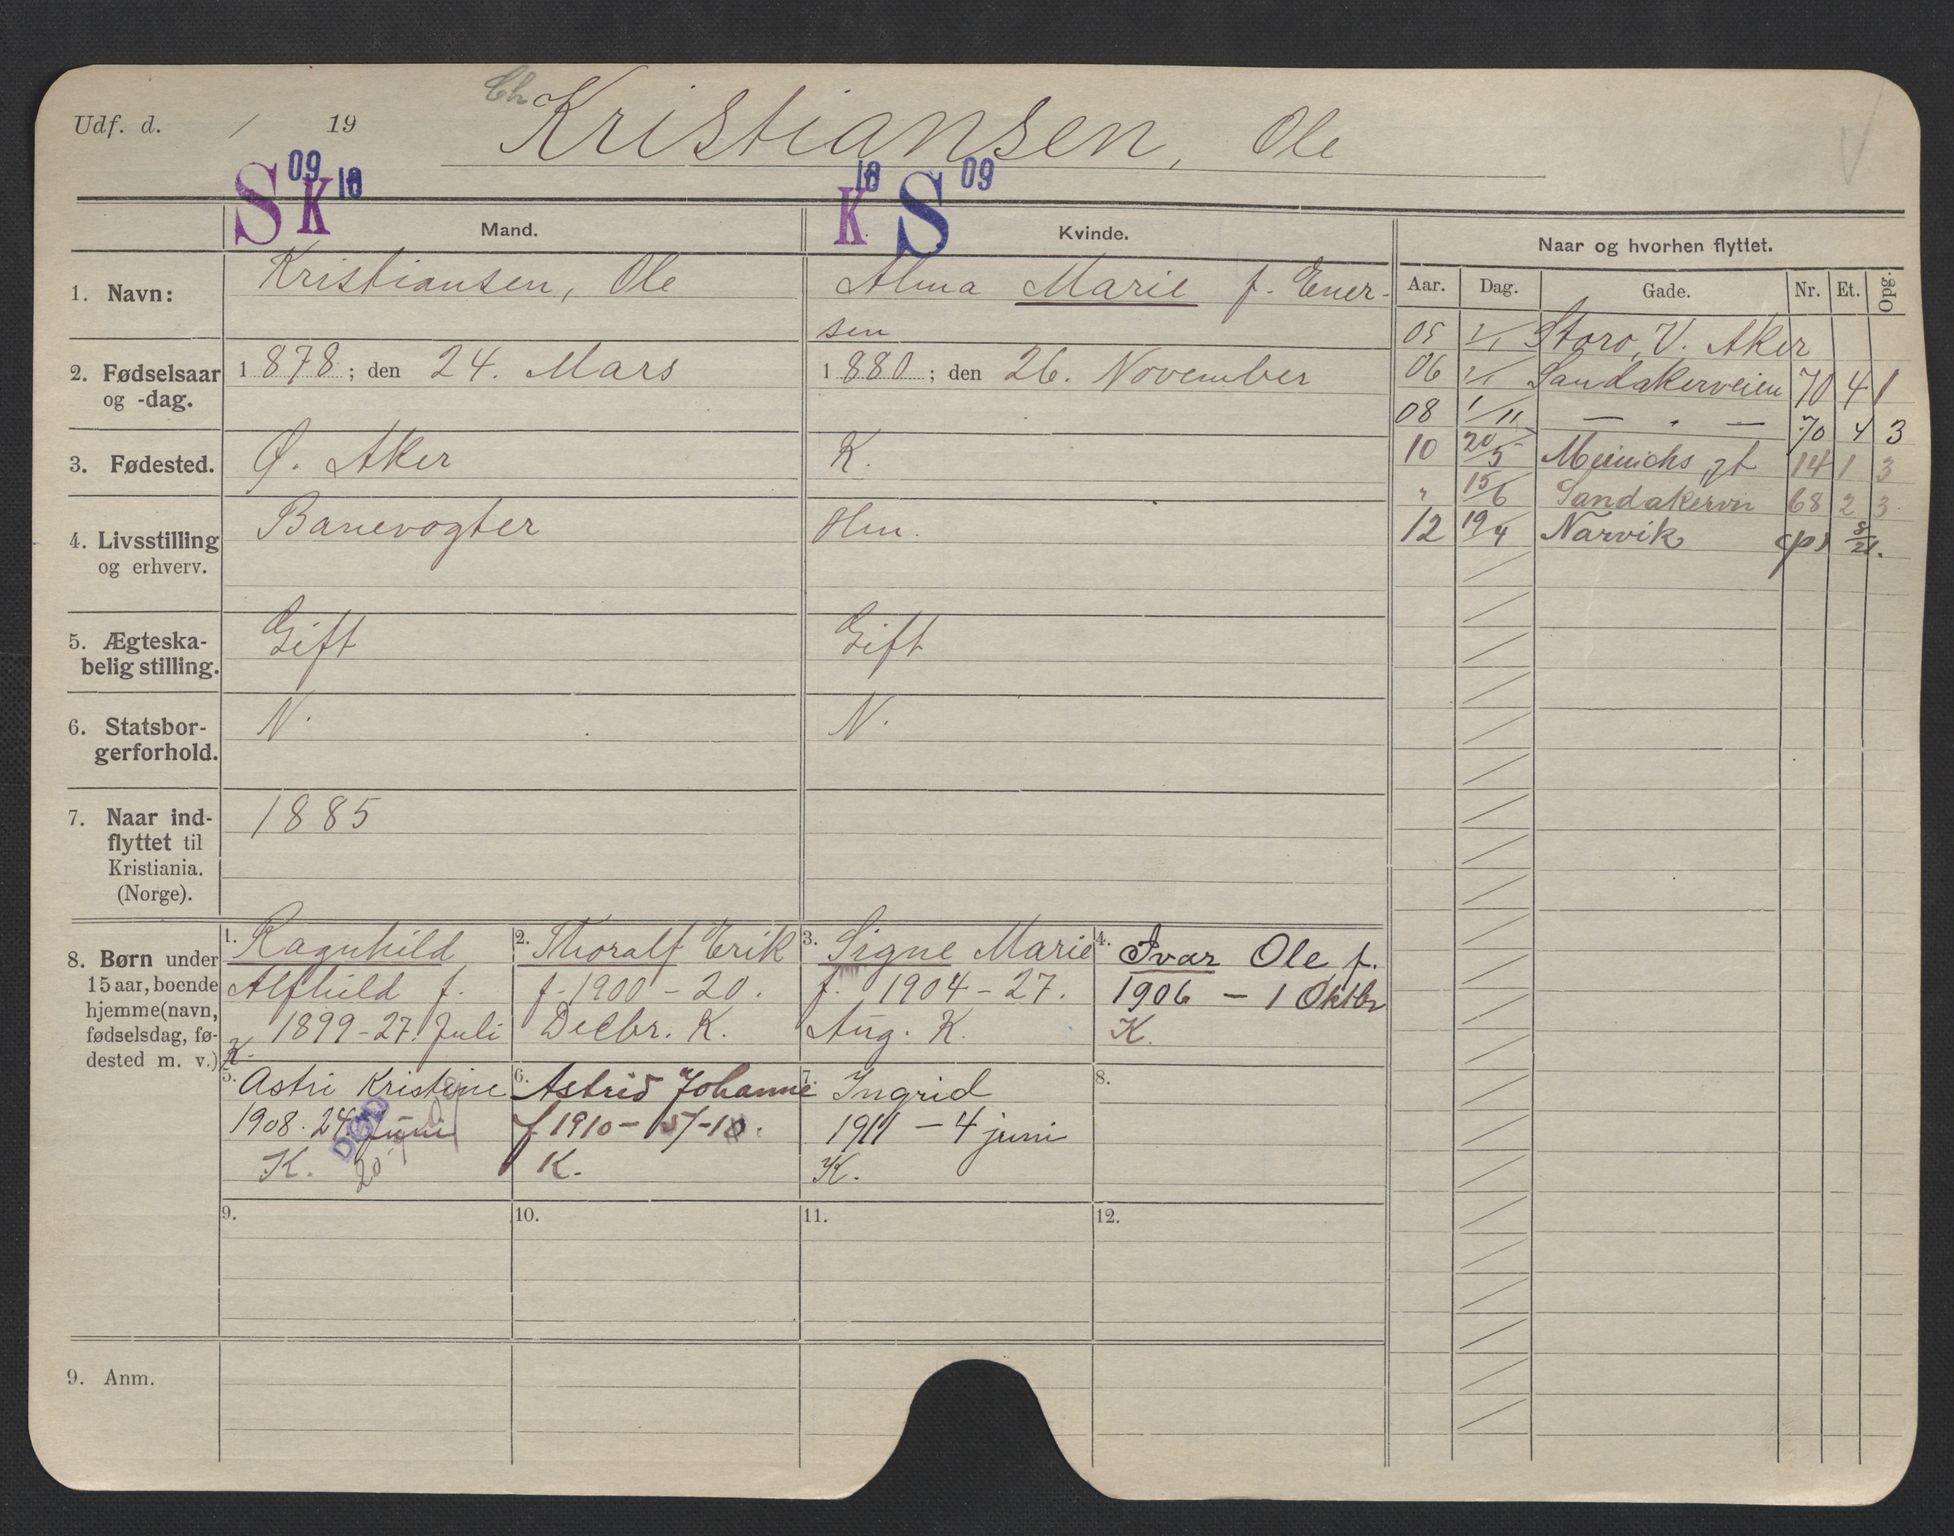 Udf. d. / 19
Ch
Kristiansen, Ole
V
S 09 K 10
K 10 S 09
Mand.
Kvinde.
Naar og hvorhen flyttet.
Aar. Dag. Gade. Nr. Et. Opg.
1. Navn:
Kristiansen, Ole
Alma Marie f. Ener-
sen
2. Fødselsaar
og -dag.
1878; den 24. Mars
1880; den 26. November
3. Fødested.
Ø. Aker
K.
4. Livsstilling
og erhverv.
Banevogter
Hm.
5. Ægteska-
belig stilling.
Gift
Gift
6. Statsbor-
gerforhold.
N.
N.
7. Naar ind-
flyttet til
Kristiania.
(Norge).
1885
05 1/1 Storo, V. Aker
06 1/1 Sandakerveien 70 4 1
08 1/11 — " — 70 4 3
10 20/5 Meinichs gt 14 1 3
" 15/6 Sandakervn 68 2 3
12 19/4 Narvik (ps) 8/21.
8. Børn under
15 aar, boende
hjemme (navn,
fødselsdag, fø-
dested m. v.)
1. Ragnhild
Alfhild f.
1899-27. Juli
K.
2. Thoralf Erik
f. 1900-20.
Decbr. K.
3. Signe Marie
f. 1904-27.
Aug. K.
4. Ivar Ole f.
1906 - 1 Oktbr
K.
5. Astri Kristine
1908. 24 Juni
K.
DØD
6. Astrid Johanne
f 1910- 5/-10.
K.
7. Ingrid
1911 - 4 juni
K.
8.
9.
10.
11.
12.
9. Anm.